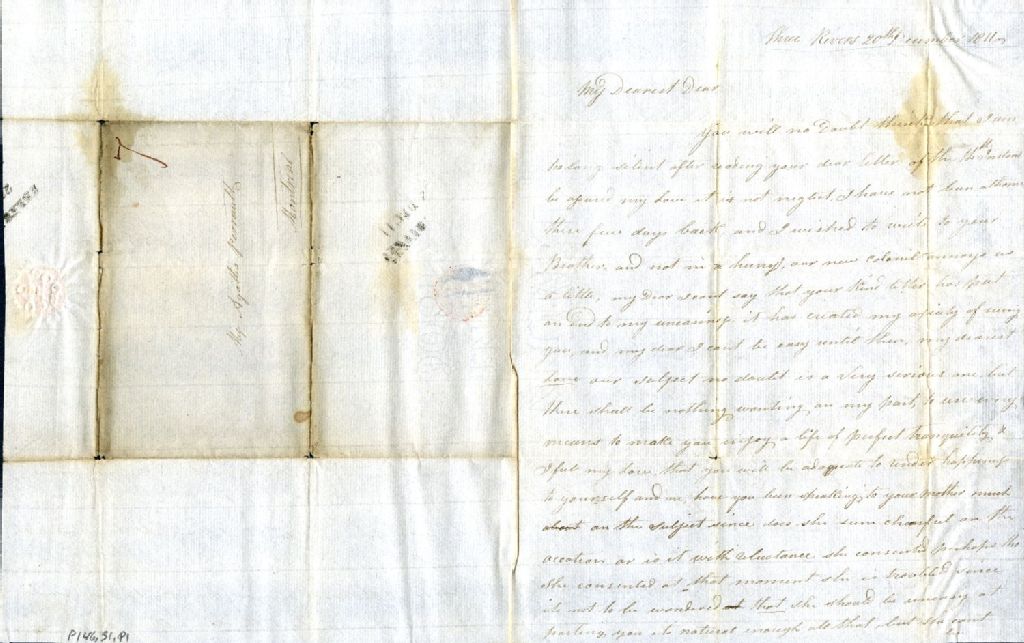 Three Rivers 20th
My Dearest Dear
You will no Doubt think that I am
to long silent after reading your dear letter of the
be assured my Love it is not neglect I have not been at home
these few days back and I wished to write to your
Brother, and not in a hurry, our new Colonel annoys us
a little, my dear I cant say that your Kind letter has put
an end to my uneasiness it has created my of seeing
you, and my dear I cant be easy until then, my dearest
Love our subject no doubt is a very serious one but
there shall be nothing wanting on my part, to use every
means to make you enjoy a life of perfect tranquility &
I feel my Love, that you will be adequate to render happiness
to yourself and me, have you been speaking to your Mother much
about on the subject since does she seem chearful on the
ocation or is it with reluctance she consented perhaps tho
she consented at that moment she is troubled since
its not to be wondered at that she should be uneasy at
parting you its natural enough all that, but she cant
Montreal
P146,S1,P1